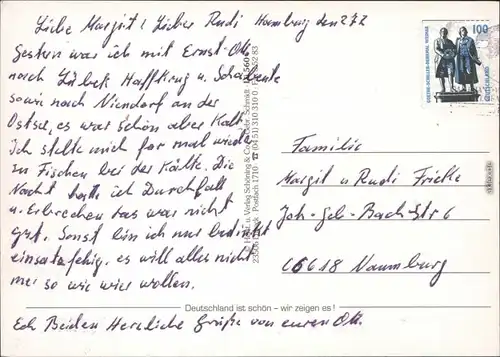 Liebe Margit! Lieber Rudi Hamburg den 2.7.2
Gestern war ich mit Ernst-Otto
nach Lübeck Haffkrug u. Scharbeutz
sowie nach Niendorf an der
Ostsee, es war schön aber Kalt.
Ich stellte mich for mal wieder
zu Fischen bei der Kälte. Die
Nacht hatte ich Durchfall
u. Erbrechen das war nicht
gut. Sonst bin ich nur bedingt
einsatzfähig. es will alles nicht
mer so wie wier wollen.
Deutschland ist schön – wir zeigen es!
Euch Beiden Herzliche Grüße von euren Otto.
100
GOETHE-SCHILLER-DENKMAL WEIMAR
DEUTSCHLAND
Familie
Margit u Rudi Fricke
Joh-Seb-Bach-Str 6
06618 Naumburg
Verlag Schöning & Co + Gebr. Schmidt
Postfach 1710 ☎ (04 51) 310 310